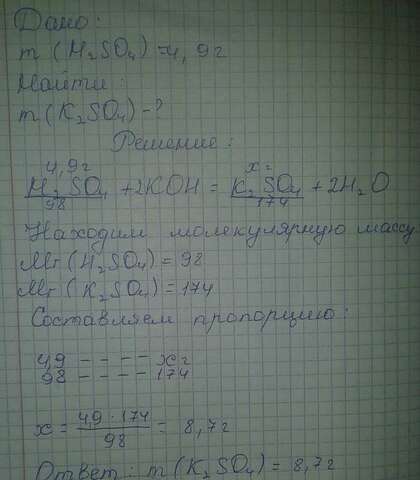 Дано:
m (H₂SO₄) = 4,9г
Найти:
m (K₂SO₄) - ?
Решение:
4,9г xг
H₂SO₄ + 2KOH = K₂SO₄ + 2H₂O
98 174
Находим молекулярную массу
Mr (H₂SO₄) = 98
Mr (K₂SO₄) = 174
Составляем пропорцию:
4,9 - - - - xг
98 - - - - 174
x = 4,9 · 174 / 98 = 8,7г
Ответ: m (K₂SO₄) = 8,7г